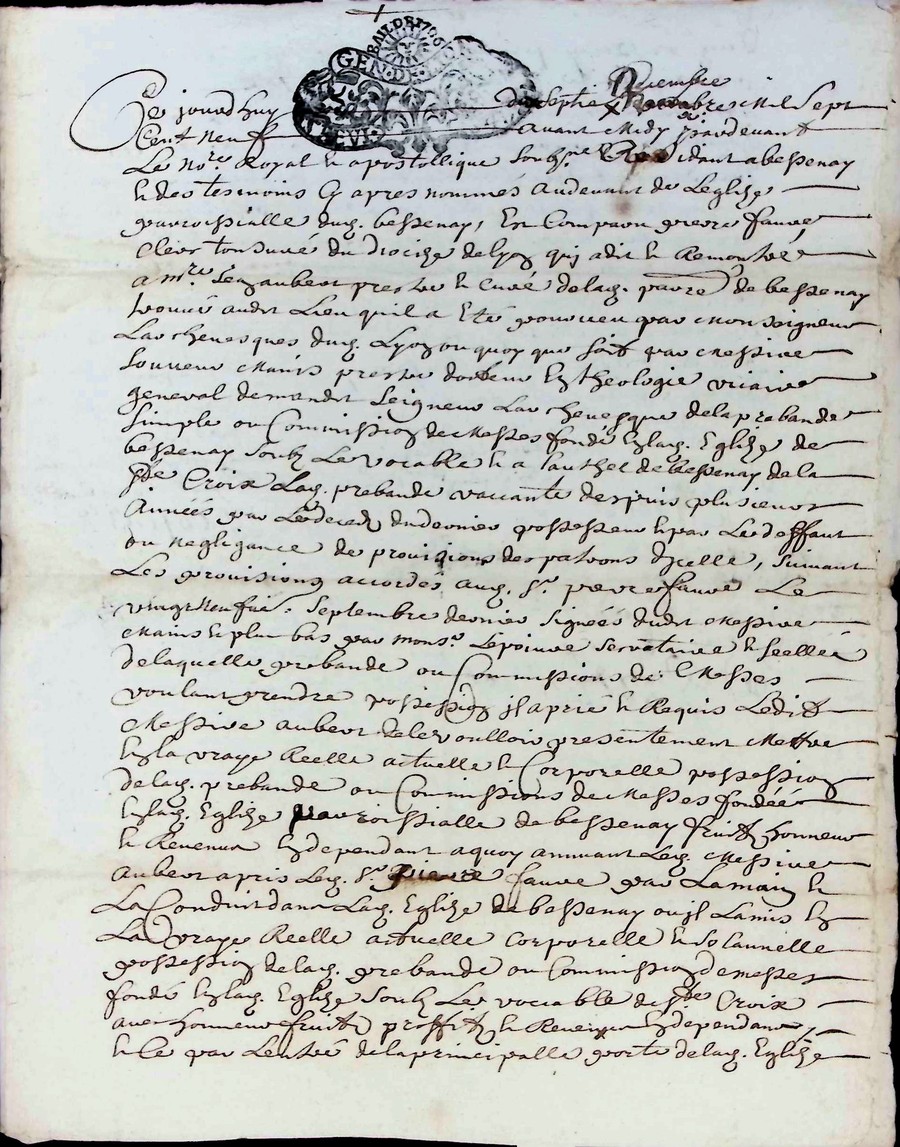 BAIL DE 1706
GEN. DE LION
Ce jourdhuy dixseptie xbre Mil Sept
Decembre
Cent Neuf avant Midy pardevant
Le nore Royal & apostollique soubsne Residant a bessenay
& des tesmoins cy apres nommés audevant de Leglize
parroissialle dud. bessenay, Est Comparu pierre faure
clerc tonsuré du dioceze de lyon qui a dit & Remontré
a mre Jean aubert prestre & Curé de lad. parre de bessenay
trouvé audit Lieu quil a Eté pourveu par Monseigneur
Larchevesque dud. Lyon ou quoy que soit par Messire
Manis prestre docteur En theologie vicaire
general de mondit Seigneur Larchevesque de la prebande
simple ou Commission de Messes fondé En lad. Eglize de
bessenay soubz Le vocable & a lauthel de bessenay de la
ste Croix Lad. prebande vaccante depuis plusieurs
Années par Le deced du dernier possesseur & par Le deffaut
ou negligance de provisions des patrons dycelle, suivant
Les provisions accordés aud. sr. pierre faure Le
vingt neufvie. Septembre dernier signées dudit Messire
Manis & plus bas par monsr Lepoivre secretaire & scellée
de laquelle prebande ou Commissions de Messes
voulant prendre possession jl a prié & Requis Ledit
Messire aubert de le voulloir presentement Mettre
En la vraye Reelle actuelle & Corporelle possession
de lad. prebande ou Commissions de Messes fondée
En lad. Eglize parroissialle de bessenay fruitz honneur
& Revenus En dependant a quoy annuant Led. Messire
aubert a pris Led. sr. pierre faure par La main &
La Conduit dans Lad. Eglize de bessenay ou jl La mis En
La vraye Reelle actuelle Corporelle & solannelle
possession de lad. prebande ou Commission de messes
fondé En lad. Eglize soubz Le vocable de ste Croix
avec honneurs fruitz proffitz & Revenus En dependans,
& ce par Lentré de la principalle porte de lad. Eglize